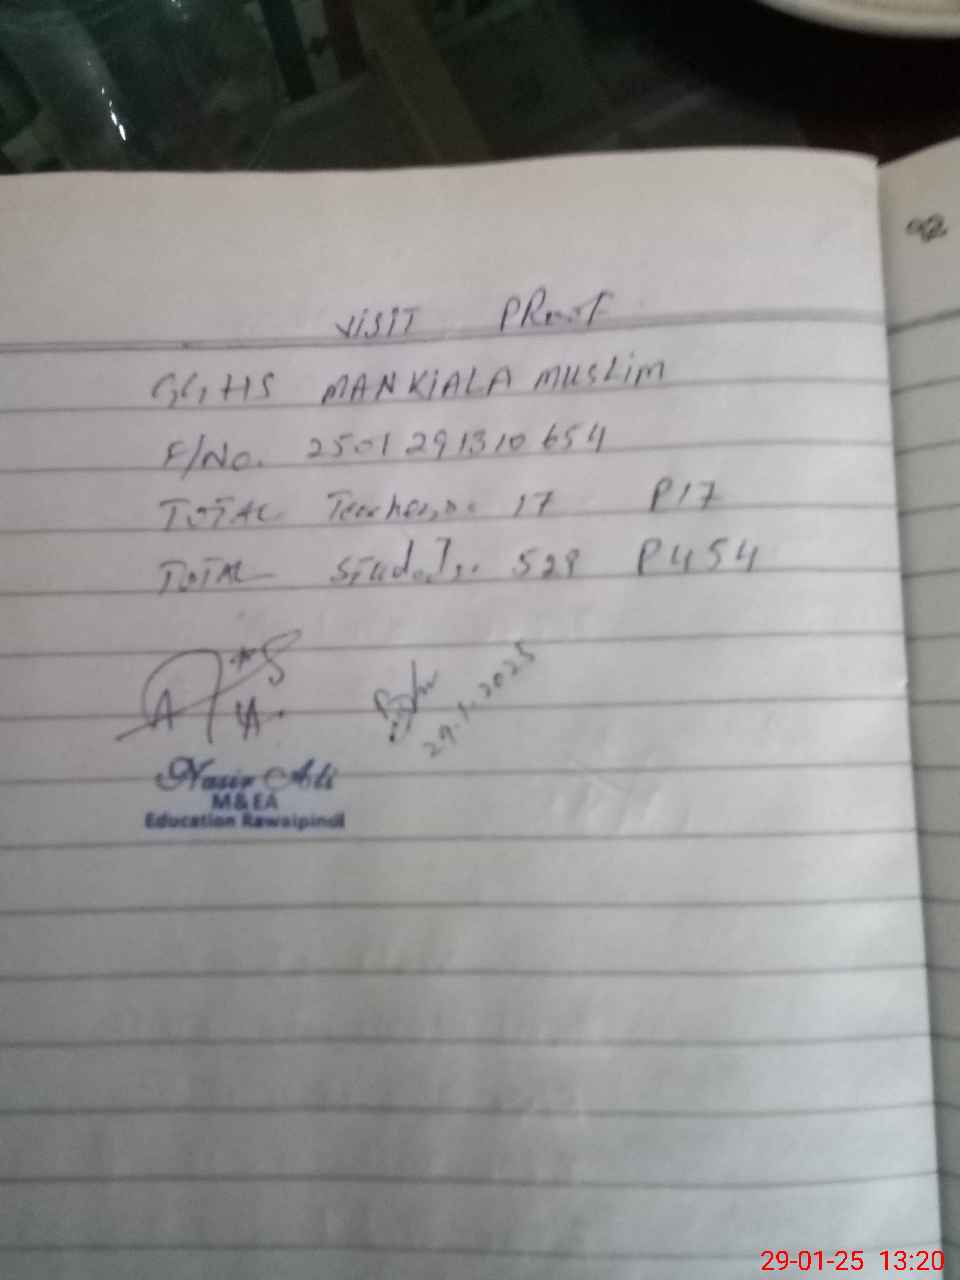 92
VISIT PRooF
GGHS MANKIALA MUSLIM
F/No. 2501291310654
TOTAL Teachers: 17 P17
TOTAL Students: 528 P454
29.1.2025
Nasir Ali
M&EA
Education Rawalpindi
29-01-25 13:20